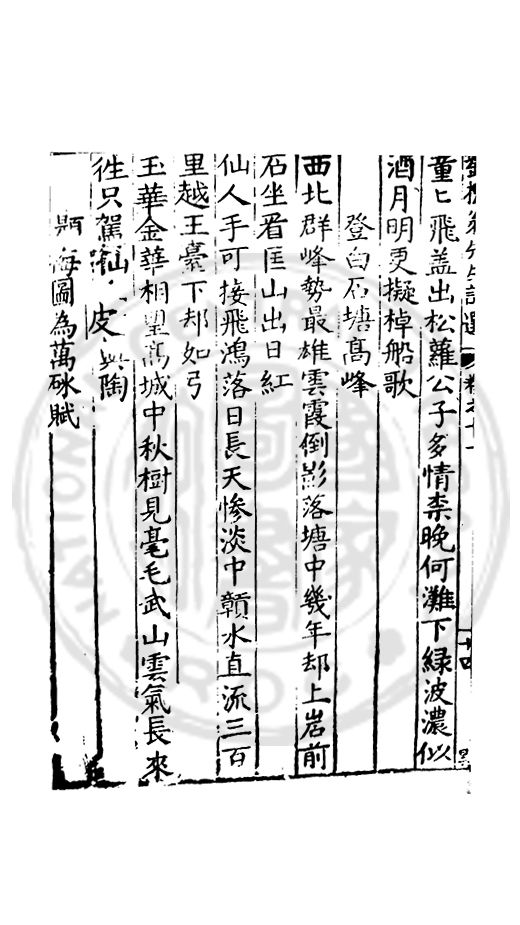 童匕飛盖出松蘿公子多情柰晚何灘下緑波濃似
酒月明更擬棹船歌
登白石塘高峰
西北群峰勢最雄雲霞倒影落塘中幾年却上岩前
石坐看匡山出日紅
仙人手可接飛鴻落日長天惨淡中贑水直流三百
里越王臺下却如弓
玉華金華相望高城中秋樹見毫毛武山雲氣長來
徃只駕仙皮與陶
海圖為萬砅賦